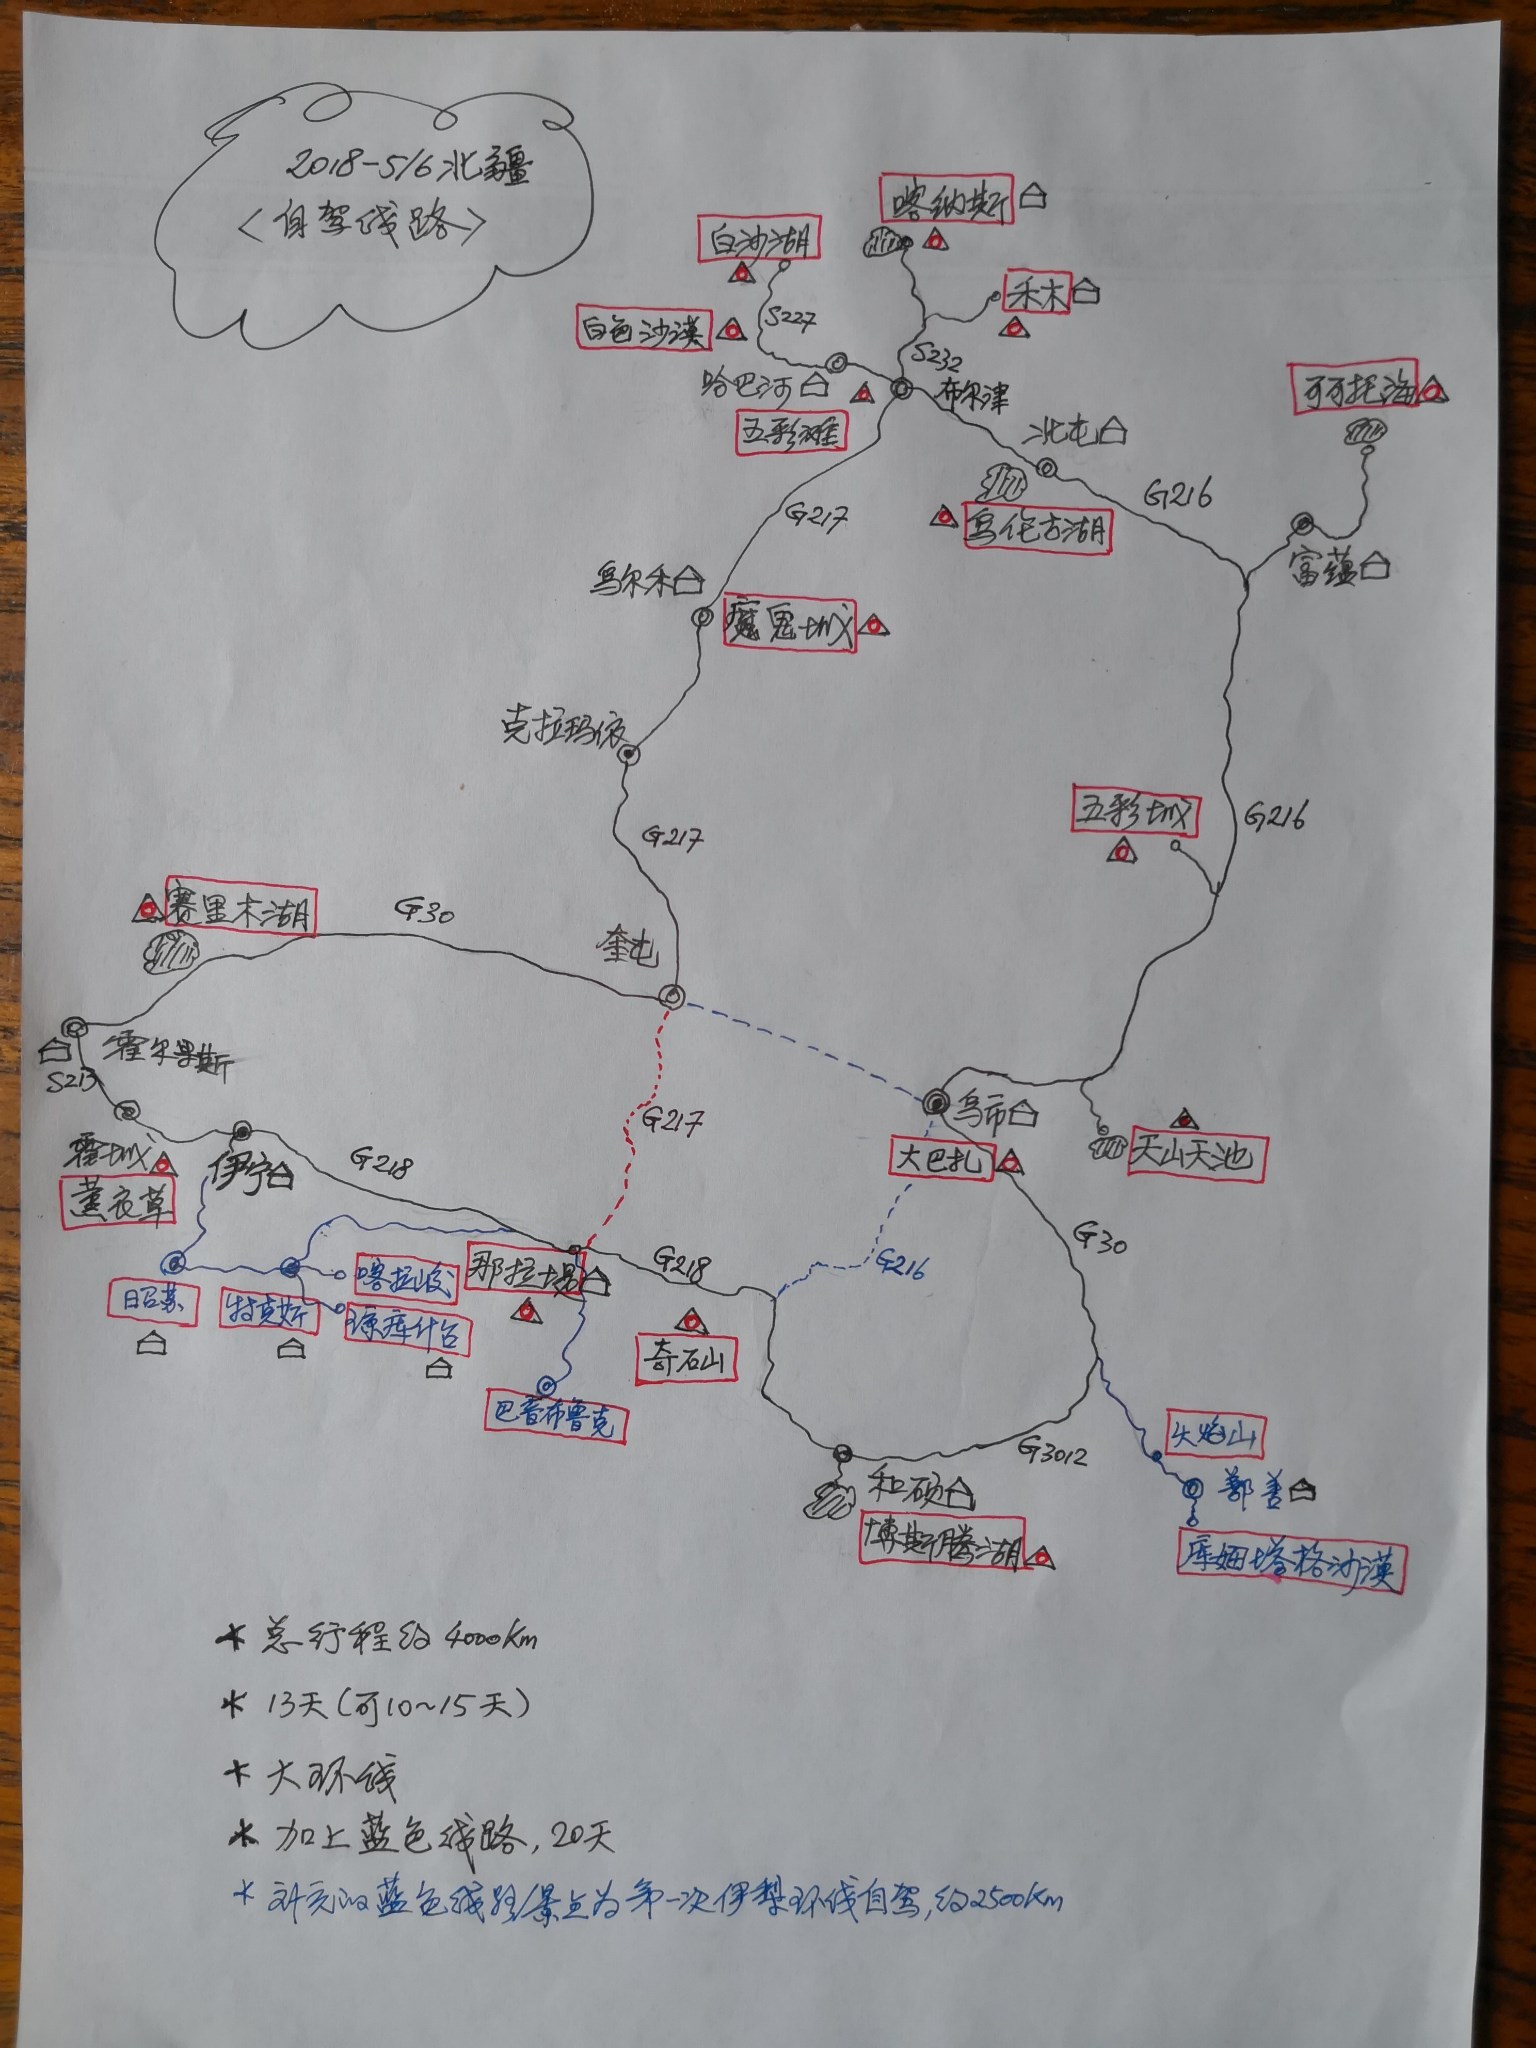 2018-5/6北疆
<自驾线路>
喀纳斯
白沙湖
禾木
S227
白色沙漠
S232
哈巴河
布尔津
可可托海
五彩滩
北屯
G216
G217
乌伦古湖
富蕴
乌尔禾
魔鬼城
克拉玛依
五彩城
G216
G217
赛里木湖
G30
奎屯
霍尔果斯
S213
乌市
G217
大巴扎
天山天池
霍城
伊宁
G218
薰衣草
G30
那拉提
G218
G216
喀拉峻
昭苏
特克斯
琼库什台
奇石山
巴音布鲁克
火焰山
G3012
和硕
鄯善
博斯腾湖
库姆塔格沙漠
* 总行程约4000Km
* 13天(可10~15天)
* 大环线
* 加上蓝色线路,20天
* 补充的蓝色线路/景点为第一次伊犁环线自驾,约2500Km